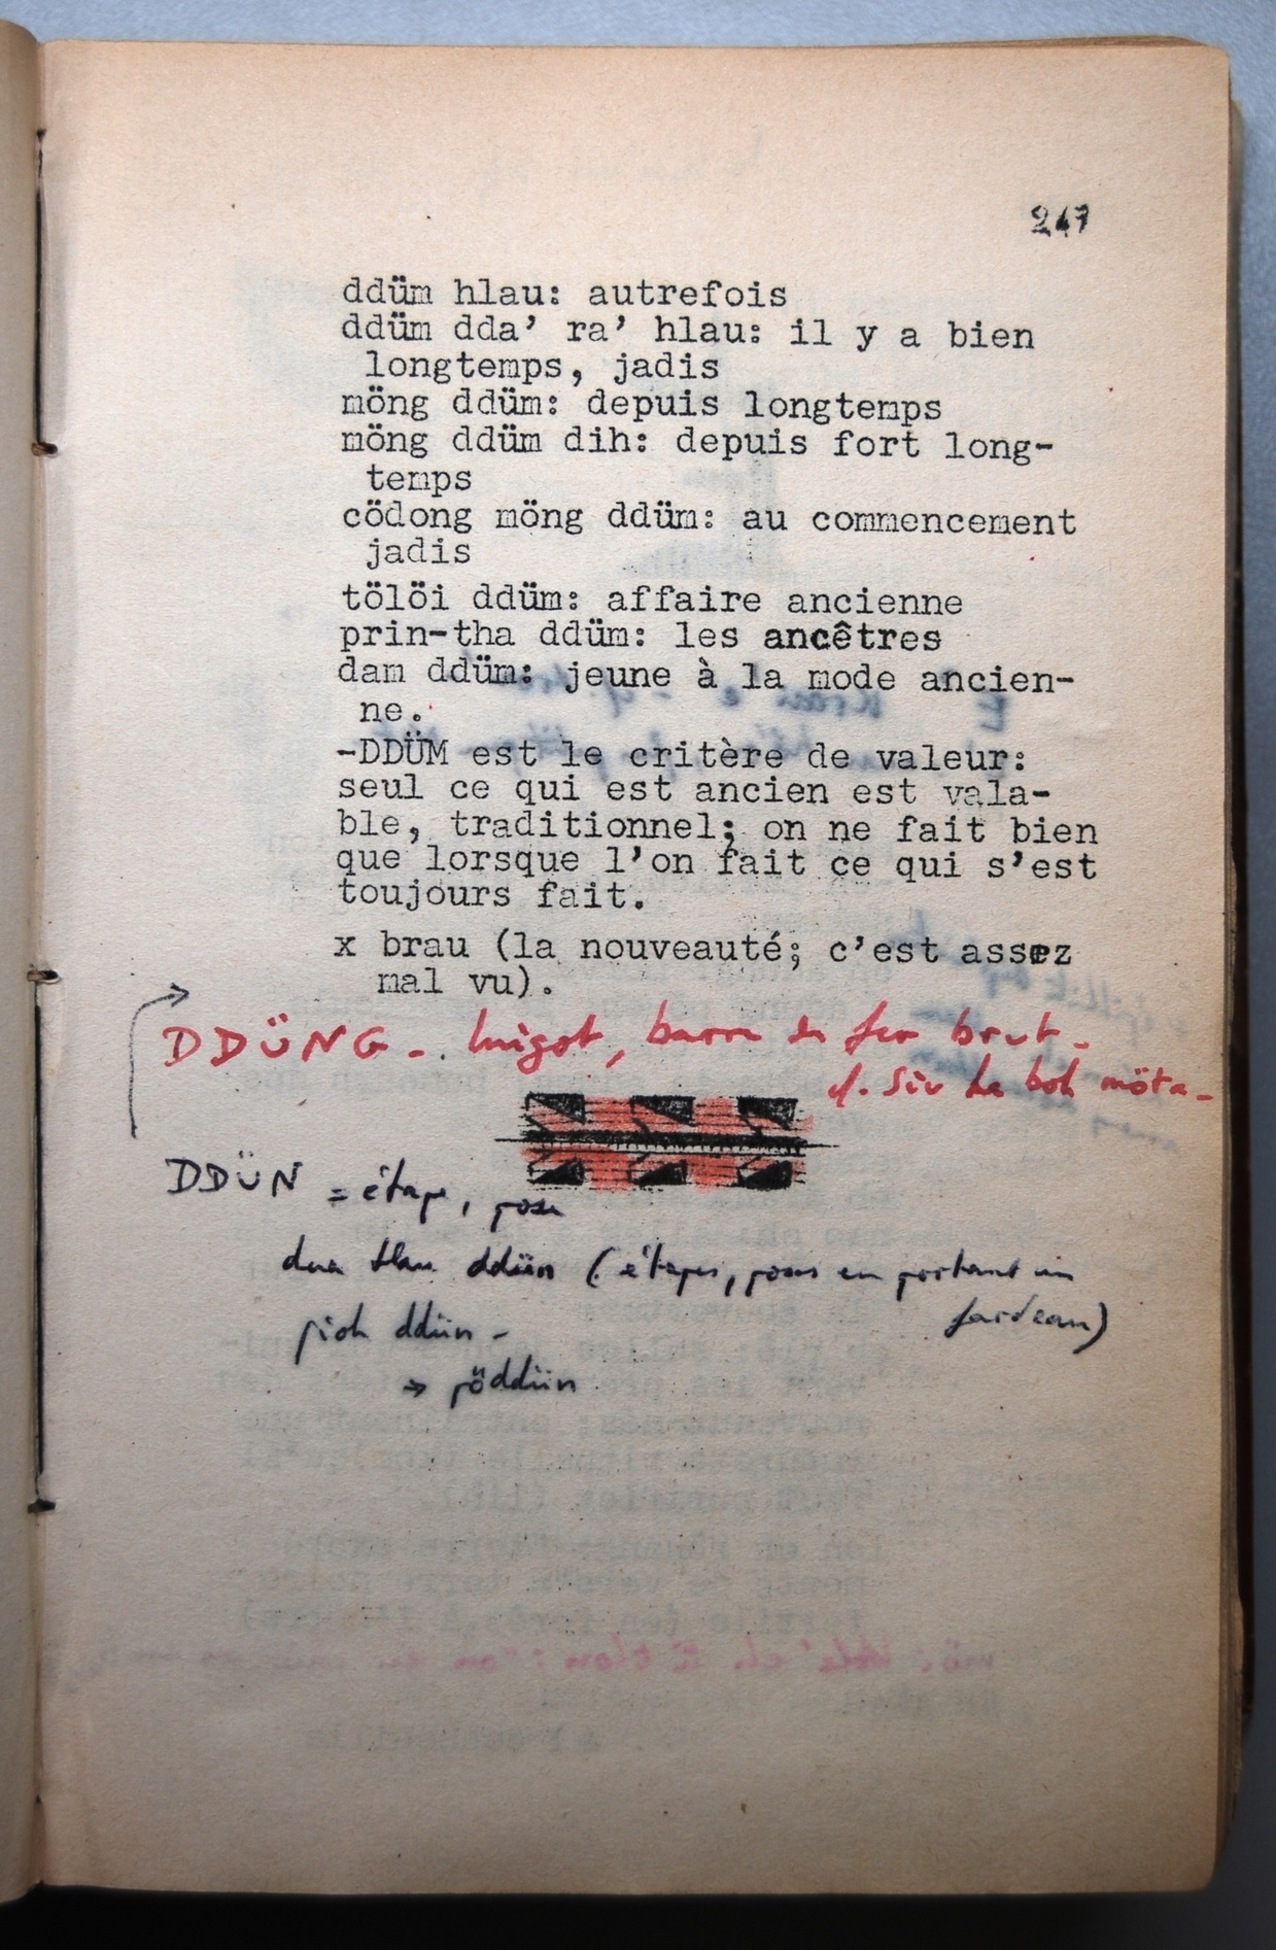 247
ddüm hlau: autrefois
ddüm dda’ ra’ hlau: il y a bien
longtemps, jadis
möng ddüm: depuis longtemps
möng ddüm dih: depuis fort long-
temps
cödong möng ddüm: au commencement
jadis
tölöi ddüm: affaire ancienne
prin-tha ddüm: les ancêtres
dam ddüm: jeune à la mode ancien-
ne.
-DDÜM est le critère de valeur:
seul ce qui est ancien est vala-
ble, traditionnel; on ne fait bien
que lorsque l’on fait ce qui s’est
toujours fait.
x brau (la nouveauté; c’est assez
mal vu).
DDÜNG - lingot, barre de fer brut -
möta -
DDÜN = étape, pose
dua tlau ddün (étapes, poses en portant un
fardeau)
pioh ddün -
→ pöddün